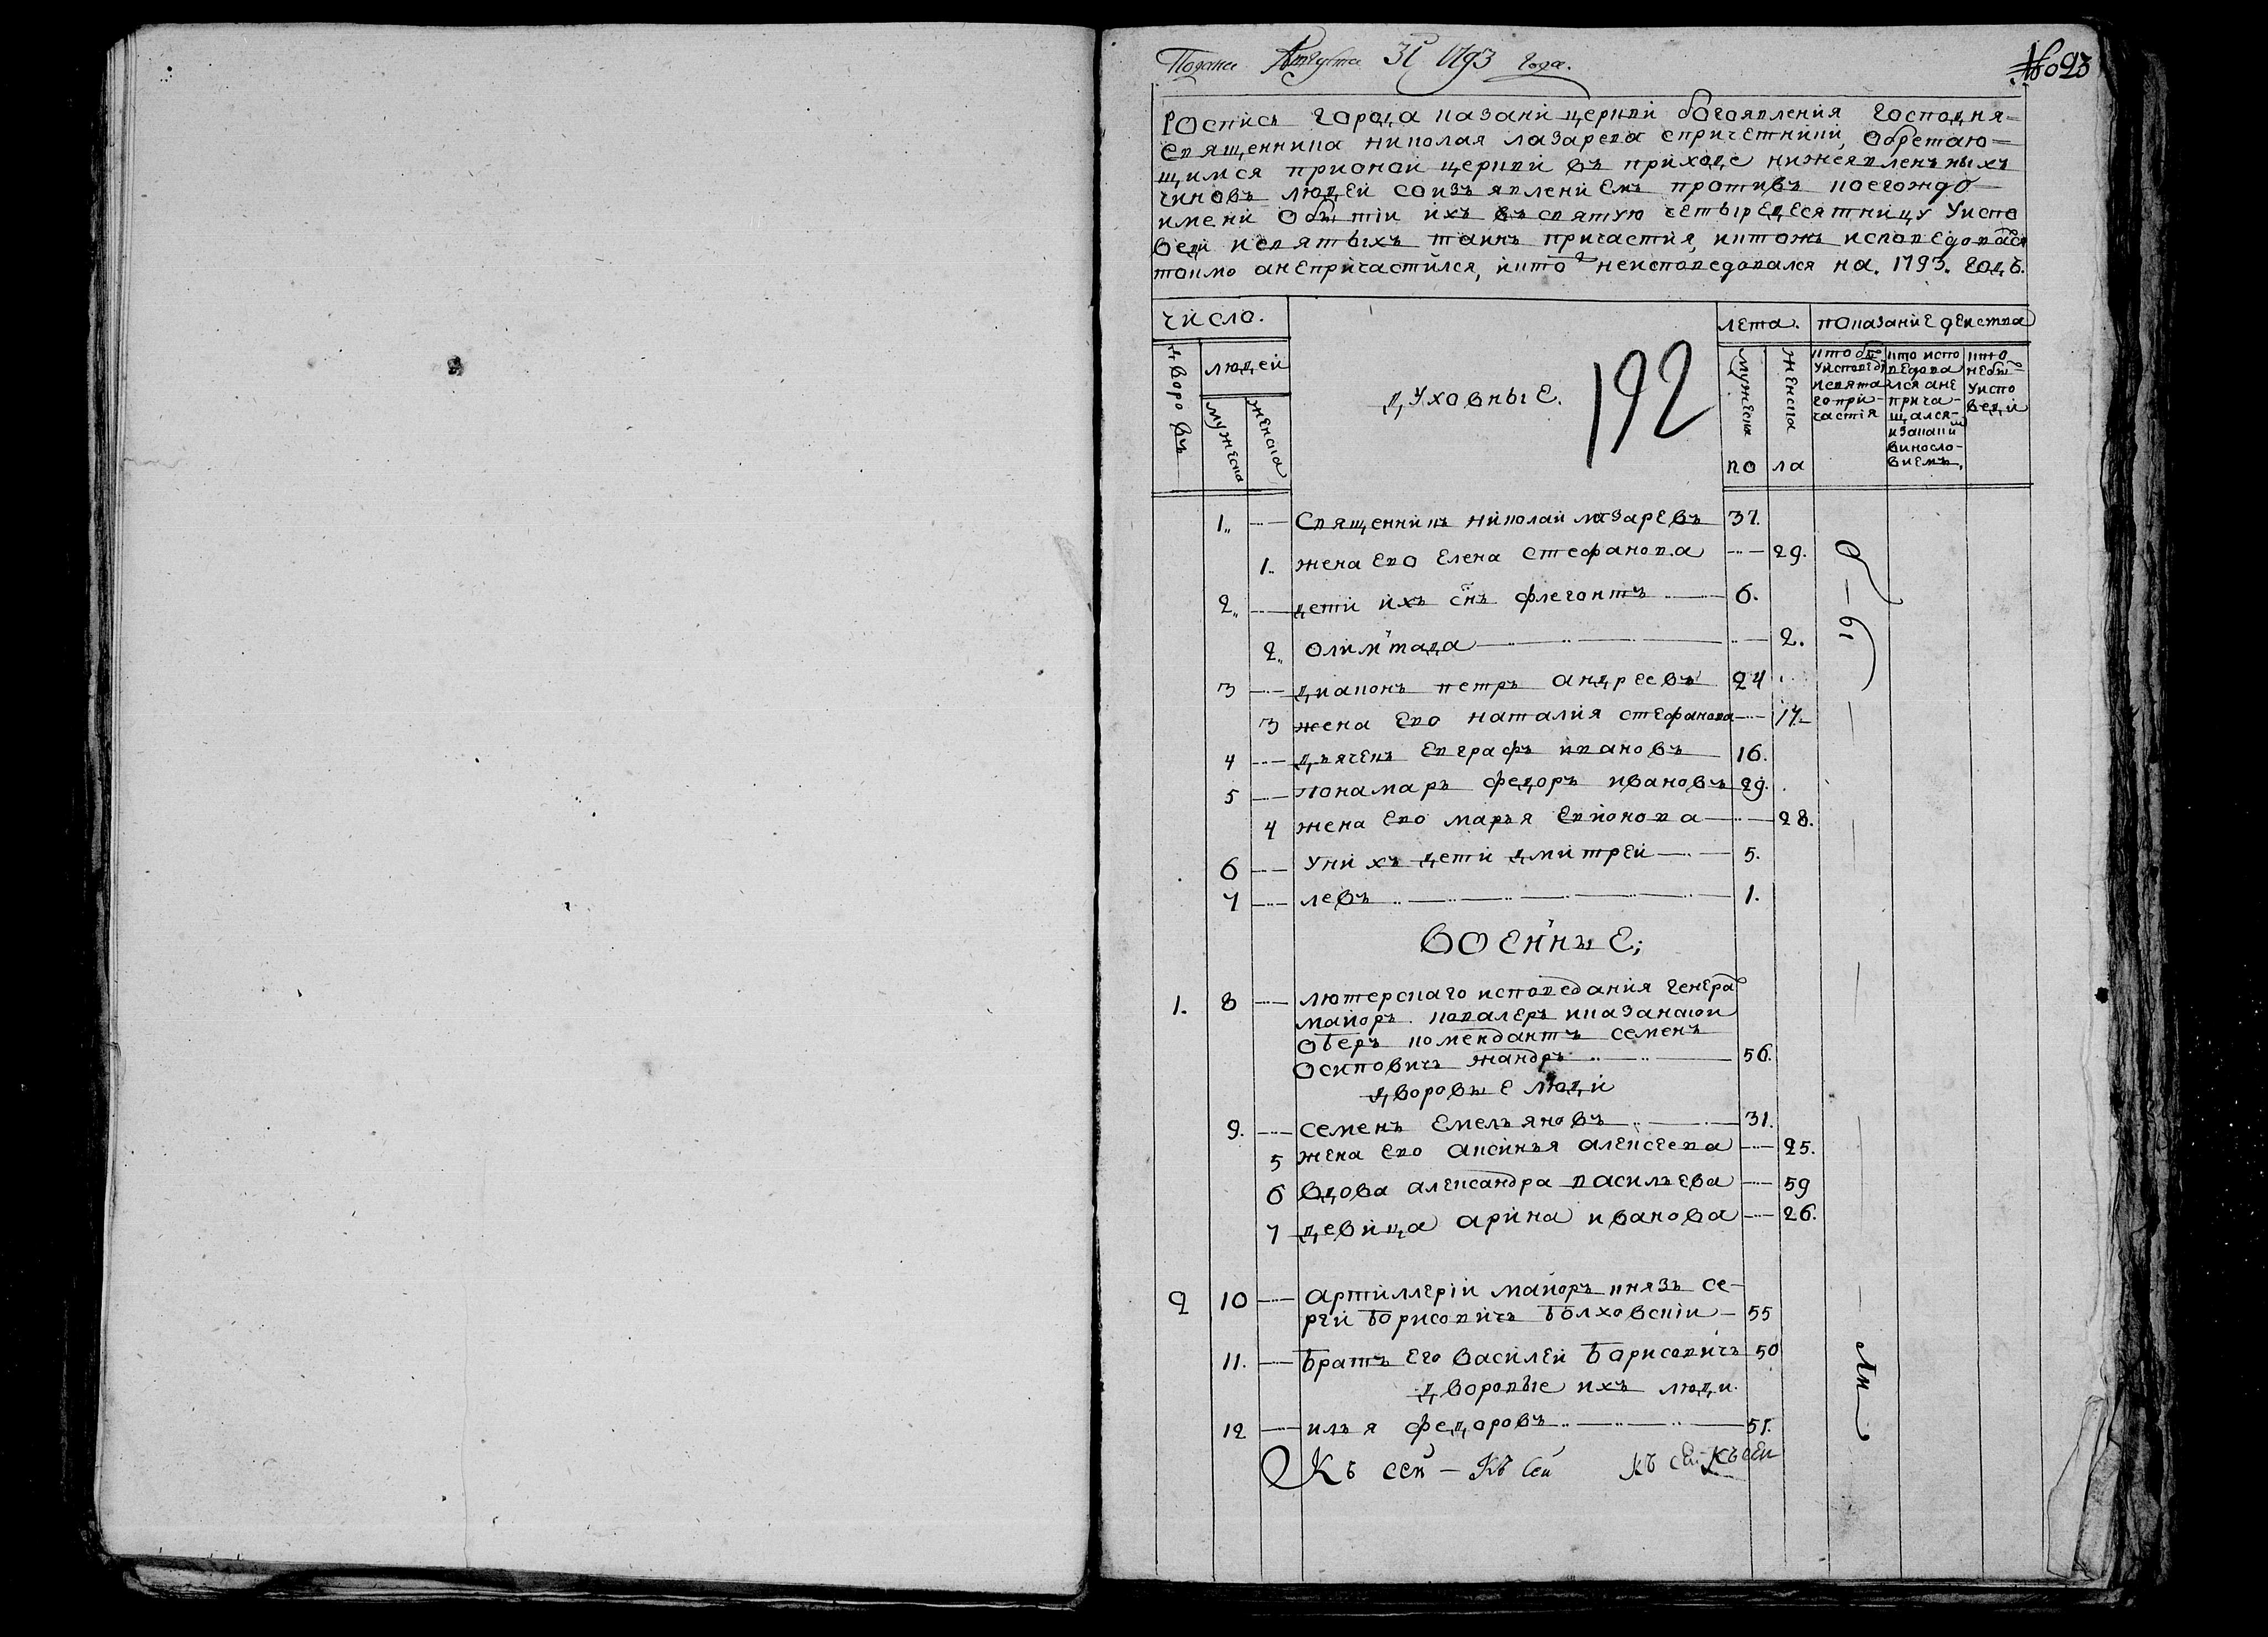 Подана Августа 31 1793 года.
№ 23
Роспись города казани церкви богоявления господня
священника николая лазарева спричетники, обретаю-
щимся прионой церкви въ приходе нижеявленныхъ
чиновъ людей соизъявлениемъ противъ коегождо
имени о бытіи ихъ въ святую четыредесятницу уиспо
веди исвятыхъ таинъ причастия, иктожъ исповедовася
токмо анепричастился, икто неисповедовался на. 1793. годъ.
число.
лета.
показание действа
дворовъ
людей
мужеска
женска
духовные.
192
мужеска
женска
по ла
кто был уисповеди исвятаго причастія
кто исповедовался ане причащался изакаким винословиемъ.
кто небыл уисповеди
1. Священникъ николай лазаревъ 37.
1. жена ево елена стефанова 29.
2. дети ихъ снъ флегонтъ 6.
2. олимпиада 2.
3 диаконъ петръ андреевъ 24
3 жена ево наталия стефанова 17.
4 дьячекъ евграфъ ивановъ 16.
5 понамарь федоръ ивановъ 29.
4 жена ево марья 28.
6 Унихъ дети дмитрей 5.
7 левъ 1.
военные;
1. 8 лютерскаго исповедания генера
маиоръ ковалеръ иказанской
оберъ комендантъ семенъ
осиповичъ 56.
дворовые люди
9. семенъ емельяновъ 31.
5 жена ево аксинья алексеева 25.
6 вдова александра васильева 59
7 девица арина иванова 26.
2 10 артиллеріи маиоръ князь се-
рги борисовичъ болховскій 55
11. братъ его василей борисовичъ 50
дворовые ихъ люди.
12 илья федоровъ 51.
Къ сей – Къ сей къ сей Къ сей